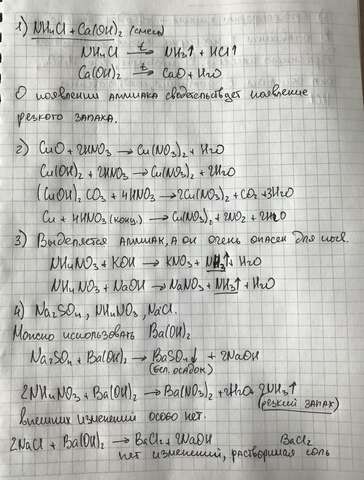 1) NH₄Cl + Ca(OH)₂ (смесь)
NH₄Cl —t→ NH₃↑ + HCl↑
Ca(OH)₂ —t→ CaO + H₂O
О появлении аммиака свидетельствует появление
резкого запаха.
2) CuO + 2HNO₃ → Cu(NO₃)₂ + H₂O
Cu(OH)₂ + 2HNO₃ → Cu(NO₃)₂ + 2H₂O
(CuOH)₂CO₃ + 4HNO₃ → 2Cu(NO₃)₂ + CO₂ + 3H₂O
Cu + 4HNO₃(конц.) → Cu(NO₃)₂ + 2NO₂ + 2H₂O
3) Выделяется аммиак, а он очень опасен для
NH₄NO₃ + KOH → KNO₃ + NH₃↑ + H₂O
NH₄NO₃ + NaOH → NaNO₃ + NH₃↑ + H₂O
4) Na₂SO₄, NH₄NO₃, NaCl.
Можно использовать Ba(OH)₂
Na₂SO₄ + Ba(OH)₂ → BaSO₄↓ + 2NaOH
(бел. осадок)
2NH₄NO₃ + Ba(OH)₂ → Ba(NO₃)₂ + 2H₂O + 2NH₃↑
(резкий запах)
внешних изменений особо нет.
2NaCl + Ba(OH)₂ → BaCl₂ + 2NaOH BaCl₂
нет изменений, растворимая соль